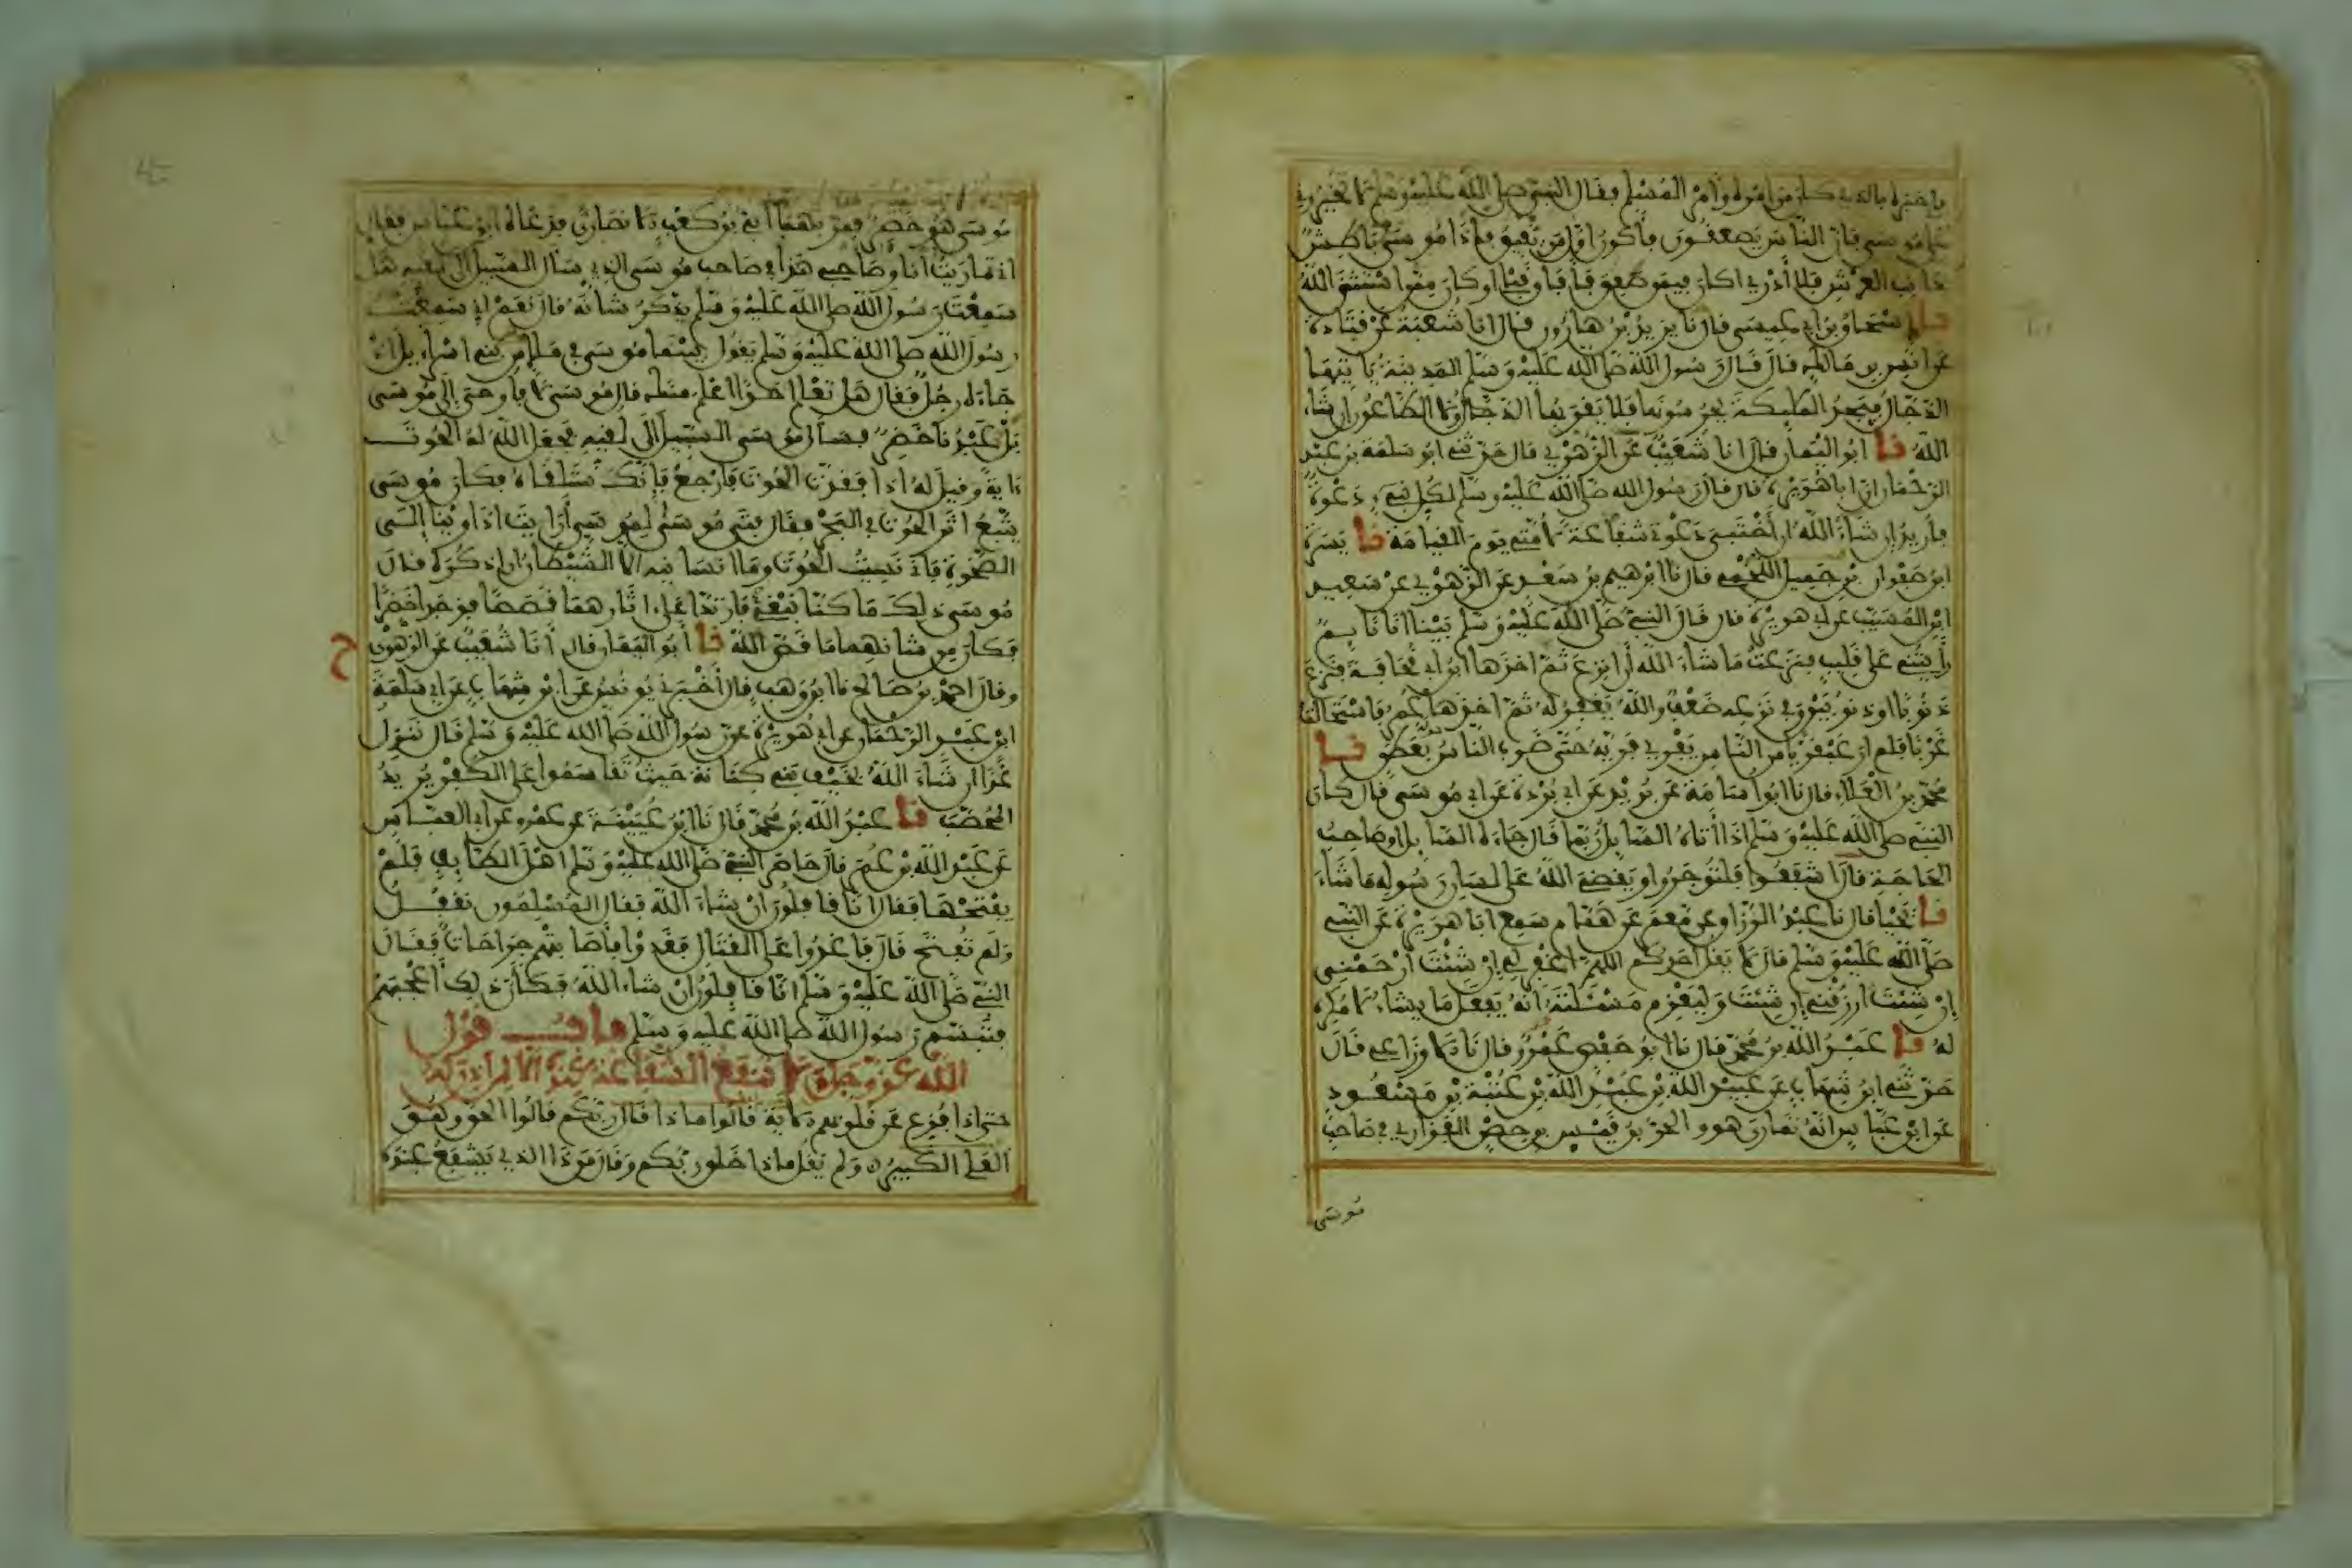 فاخبره بالذي كان من امره وامر المسلم فقال النبي صلى الله عليه وسلم لا تخيروني
على موسى فان الناس يصعقون فأكون اول من يفيق فإذا موسى باطش
بجانب العرش فلا أدري اكان فيمن صعق فأفاق قبلي او كان ممن استثنى الله
نا إسحاق بن أبي عيسى قال نا يزيد بن هارون قال انا شعبة عن قتادة
عن انس بن مالك قال قال رسول الله صلى الله عليه وسلم المدينة ياتيها
الدجال فيجد الملئكة يحرسونها فلا يقربها الدجال ولا الطاعون ان شاء
الله نا ابو اليمان قال انا شعيب عن الزهري قال حدثني ابو سلمة بن عبد
الرحمان ان ابا هريرة قال قال رسول الله صلى الله عليه وسلم لكل نبيء دعوة
فأريد إن شاء الله ان أختبي دعوتي شفاعة لأمتي يوم القيامة نا يسرة
ابن صفوان بن جميل اللخمي قال نا ابرهيم بن سعد عن الزهري عن سعيد
ابن المسيب عن أبي هريرة قال قال النبي صلى الله عليه وسلم بينا انا نايم
رأيتني على قليب فنزعت ما شاء الله أن انزع ثم اخذها ابن أبي قحافة فنزع
ذنوبا او ذنوبين وفي نزعه ضعف والله يغفر له ثم اخذها عمر فاستحالت
غربا فلم ار عبقريا من الناس يفري فريه حتى ضرب الناس بعطن نا
محمد بن العلاء قال نا ابو اسامة عن بريد عن ابي بردة عن ابي موسى قال كان
النبي صلى الله عليه وسلم اذا أتاه السايل ربما قال جاءه السايل او صاحب
الحاجة قال اشفعوا فلتؤجروا ويقضي الله على لسان رسوله ما شاء
نا يحيا قال نا عبد الرزاق عن معمر عن همام سمع ابا هريرة عن النبي
صلى الله عليه وسلم قال لا يقل احدكم اللهم اغفر لي إن شئت ارحمني
إن شئت ارزقني إن شئت وليعزم مسئلته انه يفعل ما يشاء لا مكره
له نا عبد الله بن محمد قال نا ابو حفص عمرو قال نا الاوزاعي قال
حدثني ابن شهاب عن عبيد الله بن عبد الله بن عتبة بن مسعود
عن ابن عباس انه تمارى هو والحر بن قيس بن حصن الفزاري في صاحب
موسى
موسى هو خضر فمر بهما أبي بن كعب الانصاري فدعاه ابن عباس فقال
اني تماريت أنا وصاحبي هذا في صاحب موسى الذي سأل السبيل الى لقيه هل
سمعت رسول الله صلى الله عليه وسلم يذكر شانه قال نعم إني سمعت
رسول الله صلى الله عليه وسلم يقول بينما موسى في ملإ من بني إسراءيل إذ
جاءه رجل فقال هل تعلم احدا اعلم منك قال موسى لا فأوحي إلى موسى
بلى عبدنا خضر فسأل موسى السبيل الى لقيه فجعل الله له الحوت
ءاية وقيل له اذا فقدت الحوت فارجع فإنك ستلقاه فكان موسى
يتبع اثر الحوت في البحر فقال فتى موسى لموسى أرايت اذ اوينا إلى
الصخرة فاني نسيت الحوت وما انسانيه إلا الشيطان ان اذكره قال
موسى ذلك ما كنا نبغي فارتدا على ءاثارهما قصصا فوجدا خضرا
فكان من شانهما ما قص الله نا أبو اليمان قال أنا شعيب عن الزهري
ح
وقال احمد بن صالح نا ابن وهب قال أخبرني يونس عن ابن شهاب عن ابي سلمة
ابن عبد الرحمان عن ابي هريرة عن رسول الله صلى الله عليه وسلم قال ننزل
غدا ان شاء الله بخيف بني كنانة حيث تقاسموا على الكفر يريد
المحصب نا عبد الله بن محمد قال نا ابن عيينة عن عمرو عن ابي العباس
عن عبد الله بن عمر قال حاصر النبي صلى الله عليه وسلم اهل الطايف فلم
يفتحها فقال انا قافلون ان شاء الله فقال المسلمون نقفل
ولم تفتح قال فاغدوا على القتال فغدوا فأصابتهم جراحات فقال
النبي صلى الله عليه وسلم انا قافلون ان شاء الله فكأن ذلك أعجبهم
فتبسم رسول الله صلى الله عليه وسلم باب قول
الله عز وجل ولا تنفع الشفاعة عنده الا لمن اذن له
حتى اذا فزع عن قلوبهم الاية قالوا ماذا قال ربكم قالوا الحق وهو
العلي الكبير ولم يقل ماذا خلق ربكم وقال من ذا الذي يشفع عنده